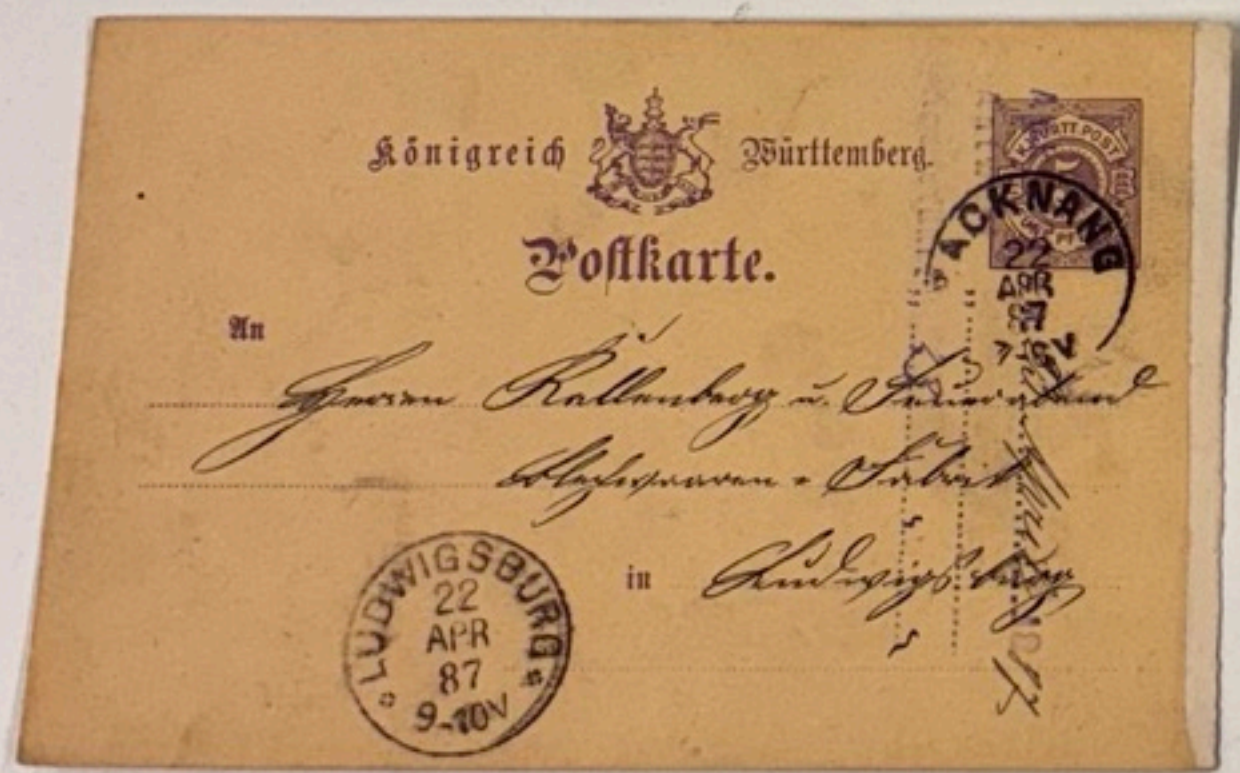 Königreich Württemberg.
Postkarte.
K. WÜRTT. POST
BACKNANG
22
APR
87
An
Herren Kallenberg u. Feuerabend
Blechwaaren-Fabrik
in Ludwigsburg
LUDWIGSBURG
22
APR
87
9-10V